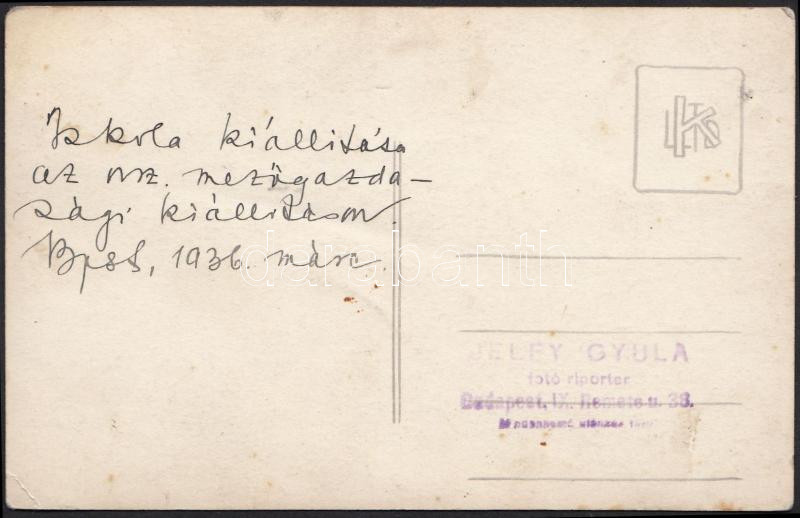 Iskola kiállitása
az orsz. mezőgazda-
sági kiállitáson.
Bpest, 1936. márc.
JELFY GYULA
fotó riporter
Budapest, IX. Remete u. 38.
darabanth